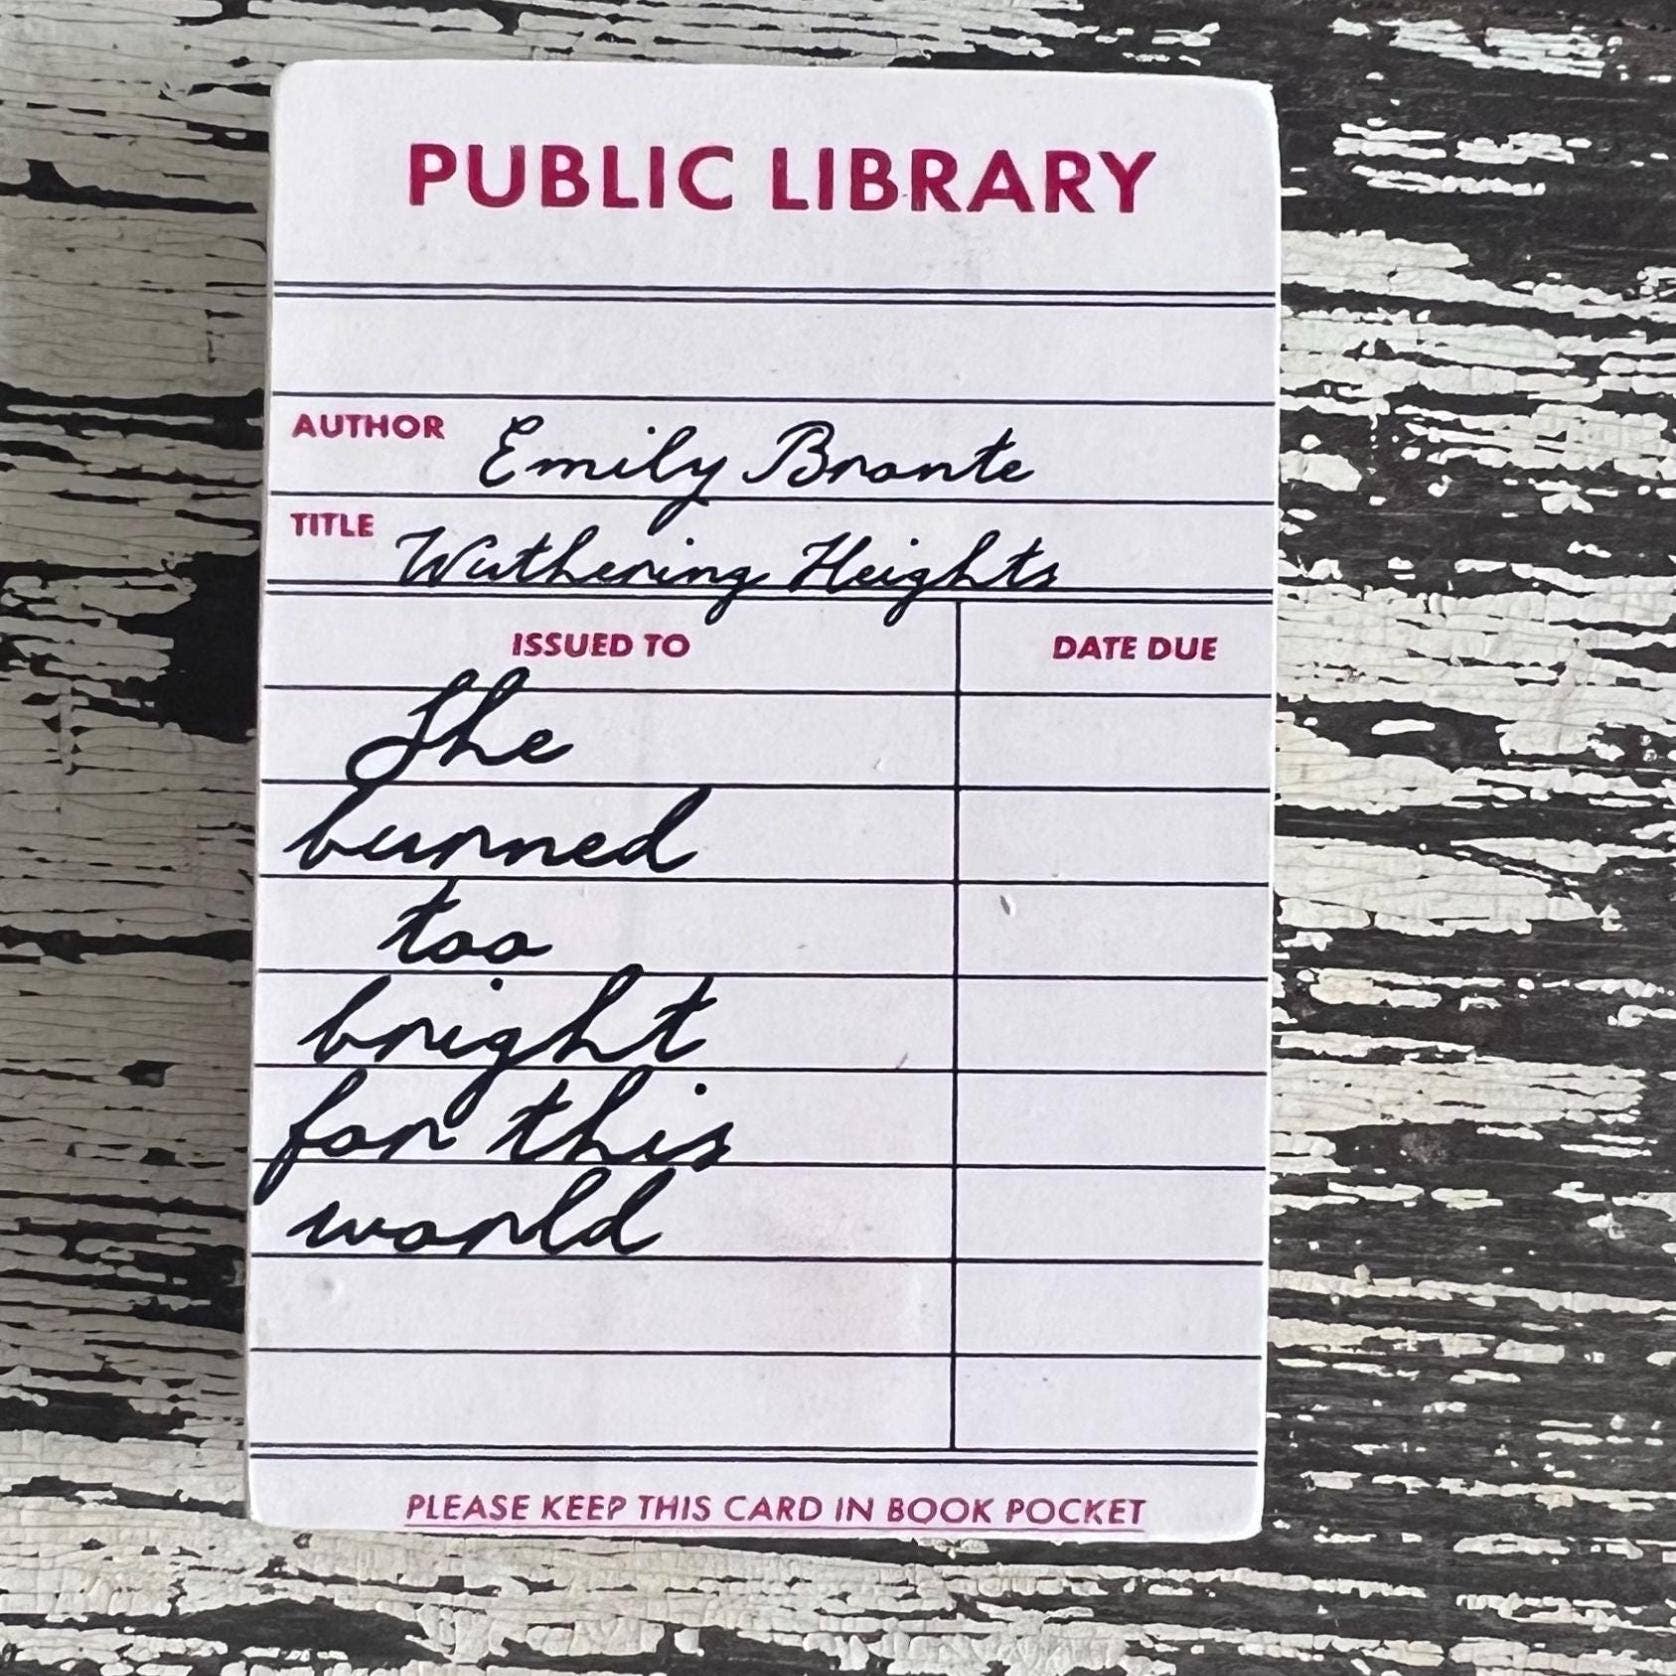 PUBLIC LIBRARY
AUTHOR Emily Bronte
TITLE Wuthering Heights
ISSUED TO DATE DUE
She
burned
too
bright
for this
world
PLEASE KEEP THIS CARD IN BOOK POCKET